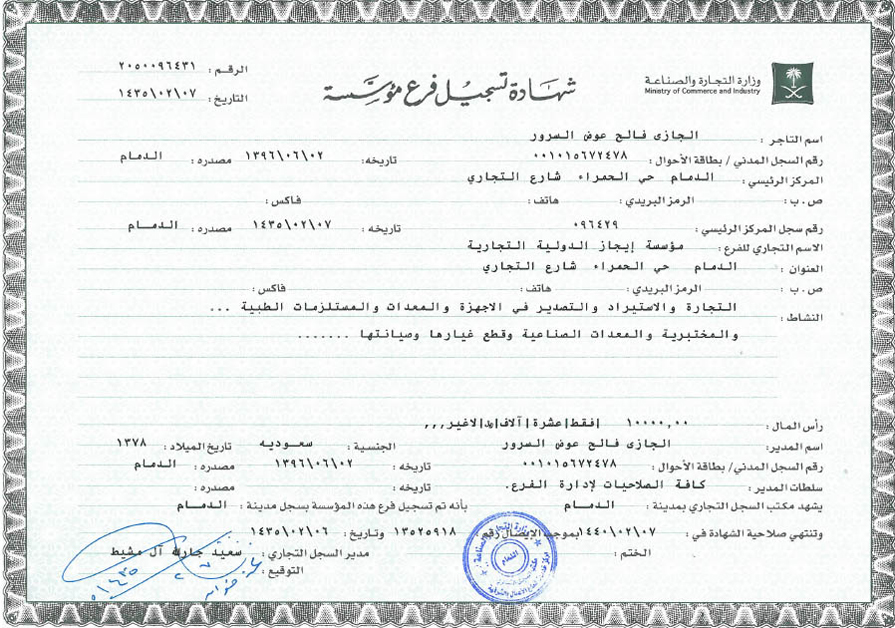 وزارة التجارة والصناعة
Ministry of Commerce and Industry
شهادة تسجيل فرع مؤسسة
الرقم : ٢٠٥٠٠٩٦٤٣١
التاريخ : ١٤٣٥\٠٢\٠٧
اسم التاجر : الجازى فالح عوض السرور
رقم السجل المدني / بطاقة الأحوال : ٠٠١٠١٥٦٧٢٤٧٨ تاريخه: ١٣٩٦\٠٦\٠٢ مصدره : الدمام
المركز الرئيسي : الدمام حي الحمراء شارع التجاري
ص . ب : الرمز البريدي : هاتف : فاكس :
رقم سجل المركز الرئيسي : ٠٩٦٤٢٩ تاريخه : ١٤٣٥\٠٢\٠٧ مصدره : الدمام
الاسم التجاري للفرع : مؤسسة إيجاز الدولية التجارية
العنوان : الدمام حي الحمراء شارع التجاري
ص . ب : الرمز البريدي : هاتف : فاكس :
النشاط : التجارة والاستيراد والتصدير في الاجهزة والمعدات والمستلزمات الطبية ...
والمختبرية والمعدات الصناعية وقطع غيارها وصيانتها .......
رأس المال : ١٠٠٠٠,٠٠ |فقط|عشرة|آلاف| |لاغير,,,
اسم المدير: الجازى فالح عوض السرور الجنسية : سعوديه تاريخ الميلاد : ١٣٧٨
رقم السجل المدني/ بطاقة الأحوال : ٠٠١٠١٥٦٧٢٤٧٨ تاريخه : ١٣٩٦\٠٦\٠٢ مصدره : الدمام
سلطات المدير : كافة الصلاحيات لإدارة الفرع. تاريخه : مصدره :
يشهد مكتب السجل التجاري بمدينة : الدمام بأنه تم تسجيل فرع هذه المؤسسة بسجل مدينة : الدمام
وتنتهي صلاحية الشهادة في : ١٤٤٠\٠٢\٠٧ بموجب الإيصال رقم : ١٣٥٢٥٩١٨ وتاريخ : ١٤٣٥\٠٢\٠٦
الختم : مدير السجل التجاري : سعيد جارالله آل مشيط
التوقيع :